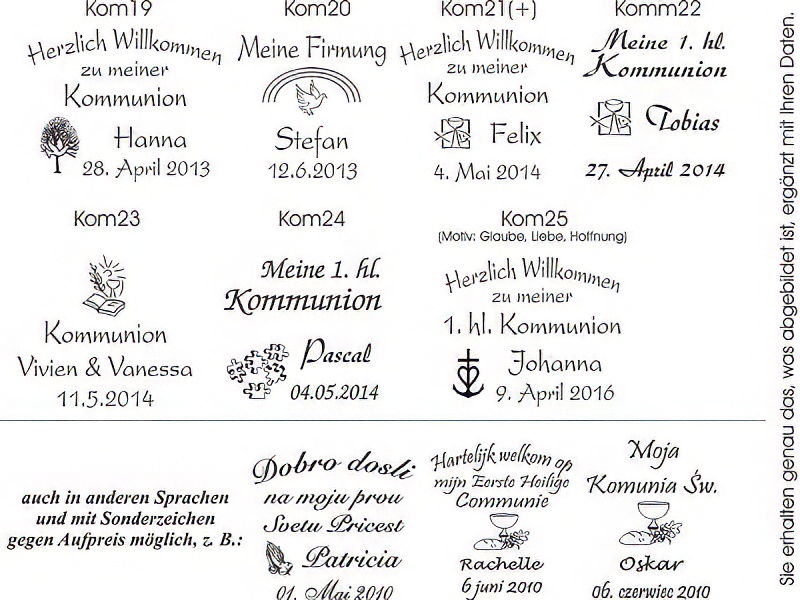 Kom19
Herzlich Willkommen
zu meiner
Kommunion
Hanna
28. April 2013
Kom20
Meine Firmung
Stefan
12.6.2013
Kom21(+)
Herzlich Willkommen
zu meiner
Kommunion
Felix
4. Mai 2014
Komm22
Meine 1. hl.
Kommunion
Tobias
27. April 2014
Kom23
Kommunion
Vivien & Vanessa
11.5.2014
Kom24
Meine 1. hl.
Kommunion
Pascal
04.05.2014
Kom25
(Motiv: Glaube, Liebe, Hoffnung)
Herzlich Willkommen
zu meiner
1. hl. Kommunion
Johanna
9. April 2016
auch in anderen Sprachen
und mit Sonderzeichen
gegen Aufpreis möglich, z. B.:
Dobro dosli
na moju prvu
Svetu Pricest
Patricia
01. Mai 2010
Hartelijk welkom op
mijn Eerste Heilige
Communie
Rachelle
6 juni 2010
Moja
Komunia Św.
Oskar
06. czerwiec 2010
Sie erhalten genau das, was abgebildet ist, ergänzt mit Ihren Daten.